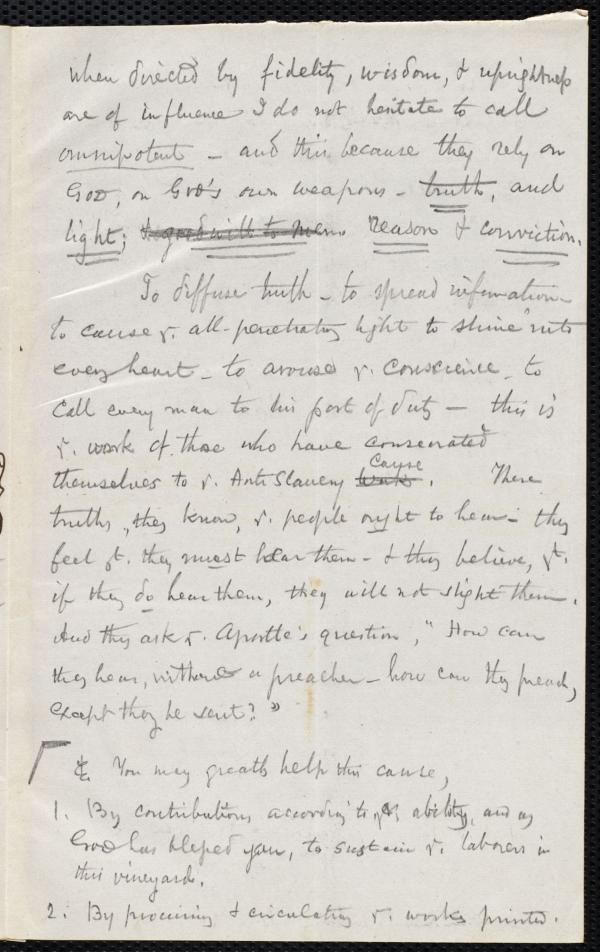 when directed by fidelity, wisdom, & uprightness
are of influence I do not hesitate to call
omnipotent – and this because they rely on
God, on God's own weapons – truth, and
light; & good will to men reason & conviction.
To diffuse truth – to spread information –
to cause ye. all-penetrating light to shine into
every heart – to arouse ye. conscience – to
call every man to his post of duty – this is
ye. work of those who have consecrated
themselves to ye. Anti Slavery Work cause. These
truths, they know, ye. people ought to hear – they
feel yt. they must hear them – & they believe, yt.
if they do hear them, they will not slight them.
And they ask ye. Apostle's question, "How can
they hear, without a preacher – how can they preach,
except they be sent?"
You may greatly help this cause,
1. By contributions according to yr. ability, and as
God has blessed you, to sustain ye. laborers in
this vineyard.
2. By procuring & circulating ye. works printed.